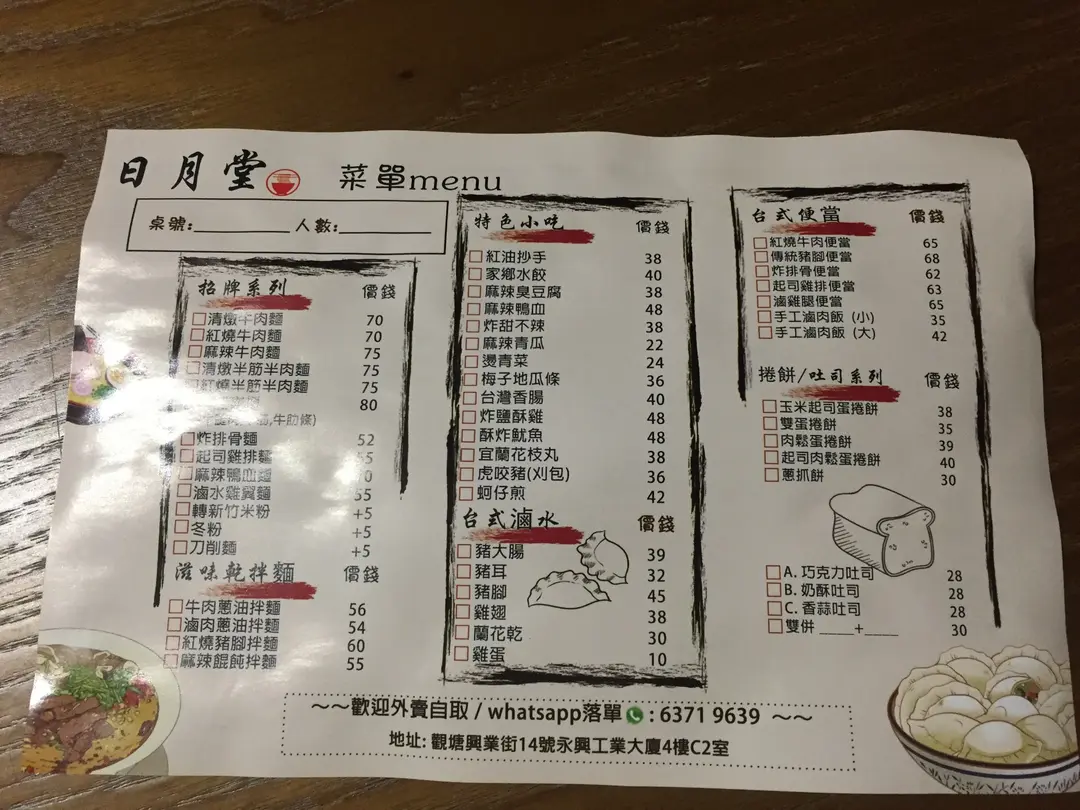 日月堂
菜單menu
桌號:________ 人數:________
招牌系列 價錢
清燉牛肉麵 70
紅燒牛肉麵 70
麻辣牛肉麵 75
清燉半筋半肉麵 75
紅燒半筋半肉麵 75
80
,牛肋條)
炸排骨麵 52
起司雞排麵 55
麻辣鴨血麵
滷水雞翼麵 55
轉新竹米粉 +5
冬粉 +5
刀削麵 +5
滋味乾拌麵 價錢
牛肉蔥油拌麵 56
滷肉蔥油拌麵 54
紅燒豬腳拌麵 60
麻辣餛飩拌麵 55
特色小吃 價錢
紅油抄手 38
家鄉水餃 40
麻辣臭豆腐 38
麻辣鴨血 48
炸甜不辣 38
麻辣青瓜 22
燙青菜 24
梅子地瓜條 36
台灣香腸 40
炸鹽酥雞 48
酥炸魷魚 48
宜蘭花枝丸 38
虎咬豬(刈包) 36
蚵仔煎 42
台式滷水 價錢
豬大腸 39
豬耳 32
豬腳 45
雞翅 38
蘭花乾 30
雞蛋 10
台式便當 價錢
紅燒牛肉便當 65
傳統豬腳便當 68
炸排骨便當 62
起司雞排便當 63
滷雞腿便當 65
手工滷肉飯 (小) 35
手工滷肉飯 (大) 42
捲餅/吐司系列 價錢
玉米起司蛋捲餅 38
雙蛋捲餅 35
肉鬆蛋捲餅 39
起司肉鬆蛋捲餅 40
蔥抓餅 30
A. 巧克力吐司 28
B. 奶酥吐司 28
C. 香蒜吐司 28
雙併 ____+____ 30
~~歡迎外賣自取 / whatsapp落單 : 6371 9639 ~~
地址: 觀塘興業街14號永興工業大廈4樓C2室